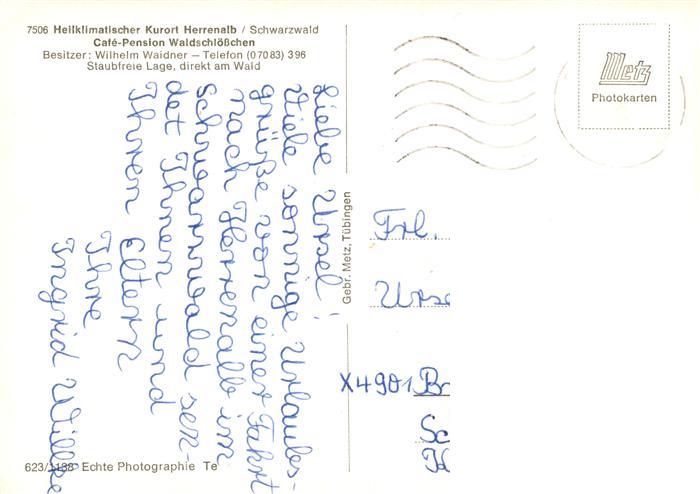 7506 Heilklimatischer Kurort Herrenalb / Schwarzwald
Café-Pension Waldschlößchen
Besitzer: Wilhelm Waidner – Telefon (07083) 396
Staubfreie Lage, direkt am Wald
Liebe Ursel!
Viele sonnige Urlaubs-
grüße von einer Fahrt
nach Herrenalb im
Schwarzwald sen-
det Ihnen und
Ihren Eltern
Ihre
Ingrid Willke
623/1188 Echte Photographie Te
Gebr. Metz, Tübingen
Metz
Photokarten
Frl.
Urse
X4901 Br
Sc